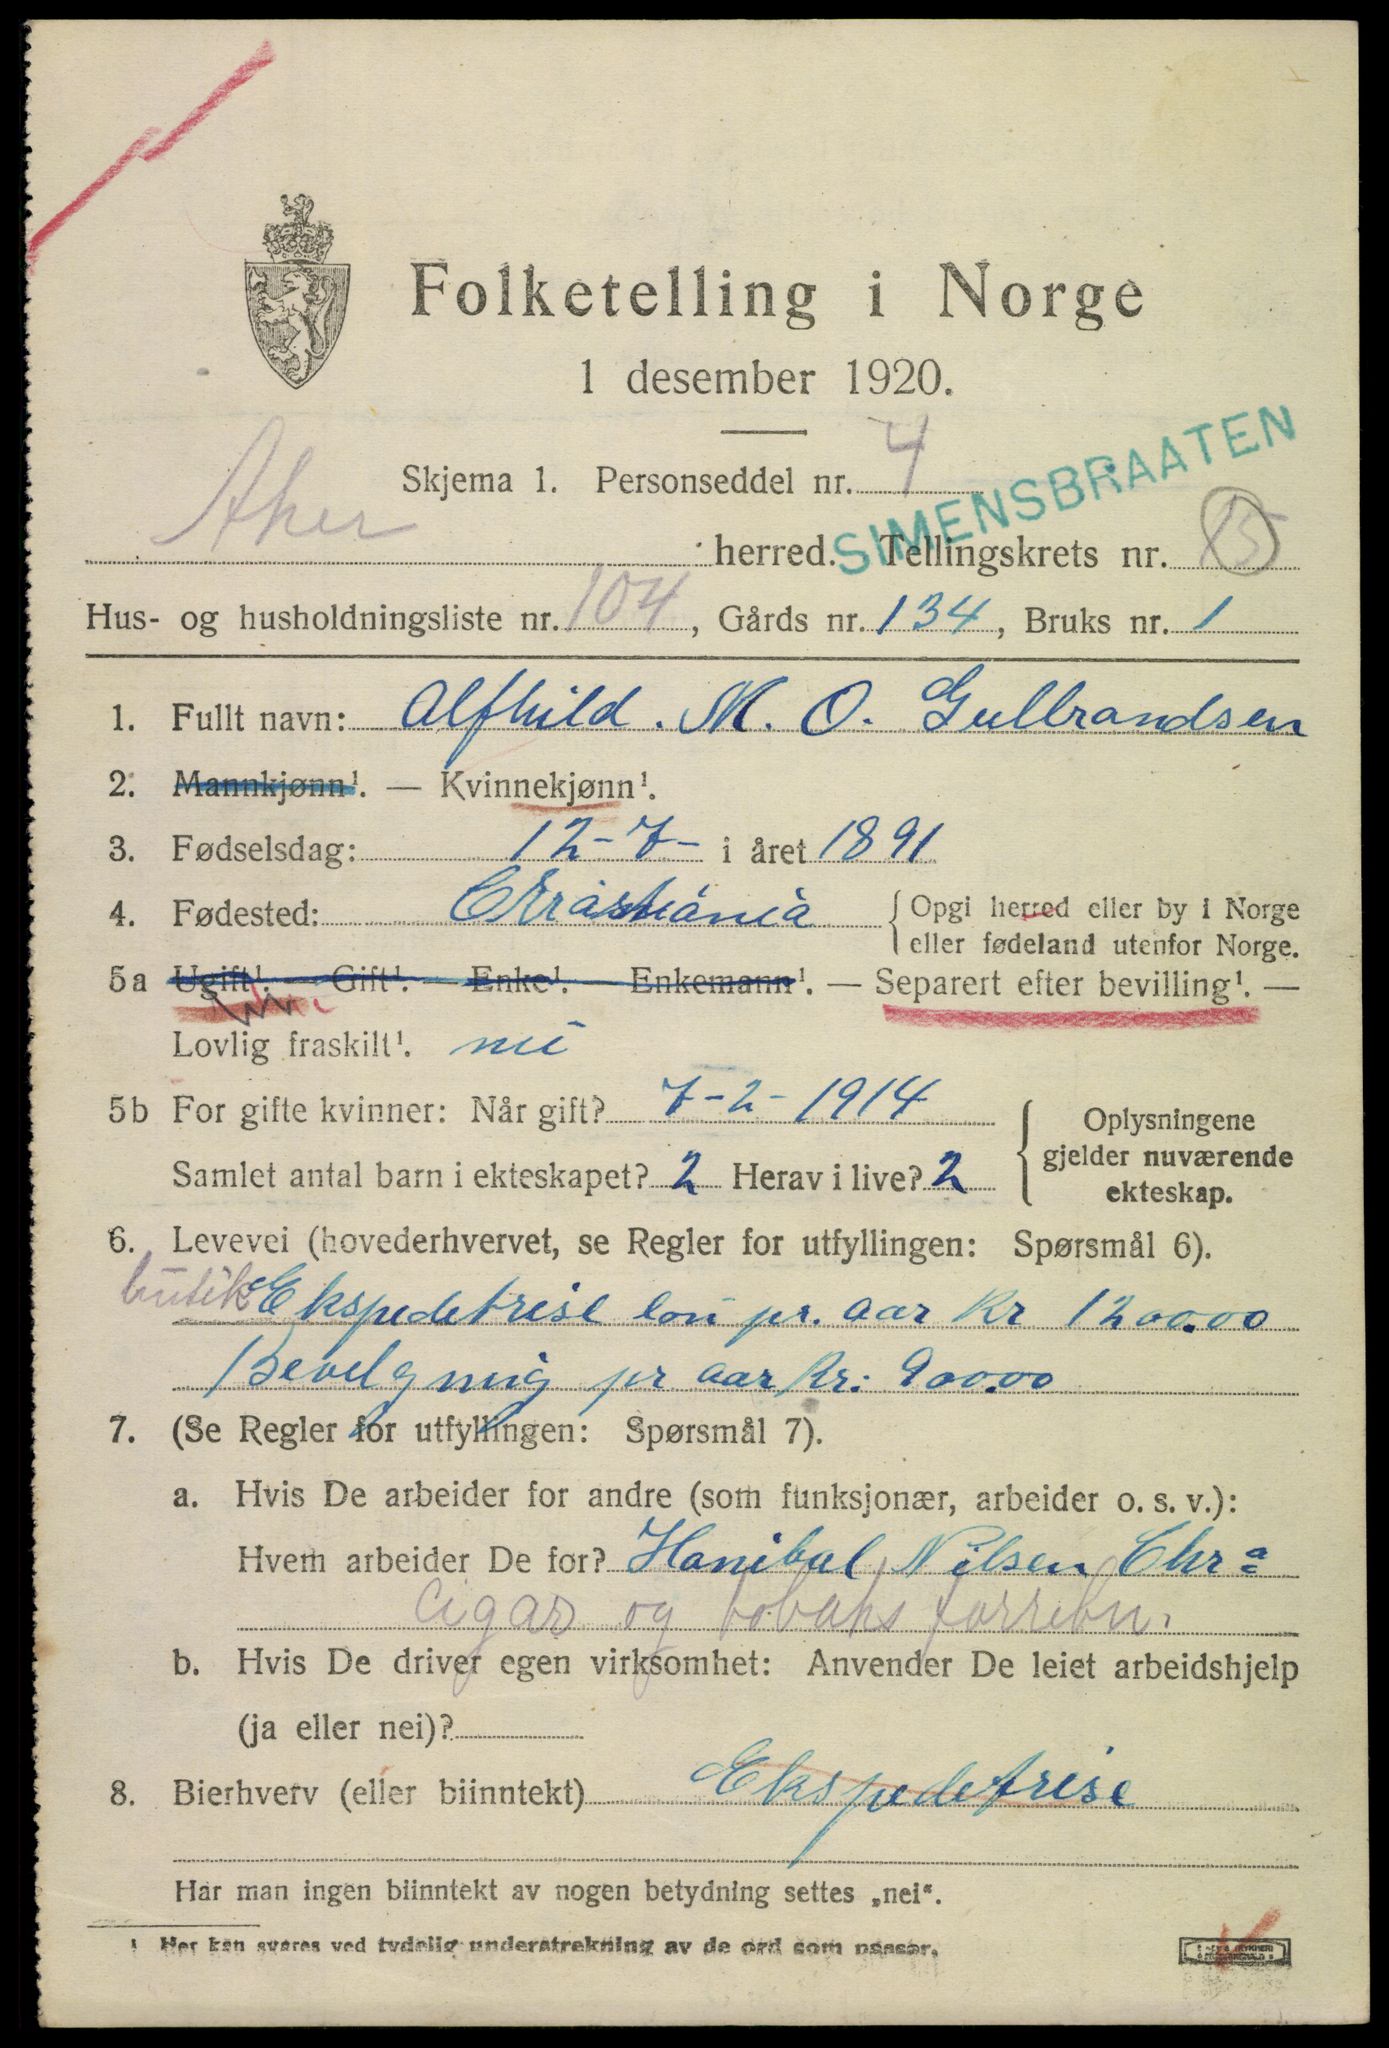 Folketelling i Norge
1 desember 1920.
Skjema 1. Personseddel nr. 4
SIMENSBRAATEN
Aker herred. Tellingskrets nr. 15
Hus- og husholdningsliste nr. 104, Gårds nr. 134, Bruks nr. 1
1. Fullt navn: Alfhild. M. O. Gulbrandsen
2. Mannkjønn¹. — Kvinnekjønn¹.
3. Fødselsdag: 12-7- i året 1891
4. Fødested: Cristiania { Opgi herred eller by i Norge
eller fødeland utenfor Norge.
5a Ugift¹. — Gift¹. — Enke¹. — Enkemann¹. — Separert efter bevilling¹. —
Lovlig fraskilt¹. nei
5b For gifte kvinner: Når gift? 7-2-1914
Samlet antal barn i ekteskapet? 2 Herav i live? 2
{ Oplysningene
gjelder nuværende
ekteskap.
6. Levevei (hovederhvervet, se Regler for utfyllingen: Spørsmål 6).
butik Ekspedetrise lön pr. aar Kr 1200.00
pr aar Kr: 900.00
7. (Se Regler for utfyllingen: Spørsmål 7).
a. Hvis De arbeider for andre (som funksjonær, arbeider o. s. v.):
Hvem arbeider De for? Hanibal Nilsen Chr a
Cigar og tobaks forretn.
b. Hvis De driver egen virksomhet: Anvender De leiet arbeidshjelp
(ja eller nei)?
8. Bierhverv (eller biinntekt) Ekspedetrise
Har man ingen biinntekt av nogen betydning settes „nei“.
¹ Her kan svares ved tydelig understrekning av de ord som passer.